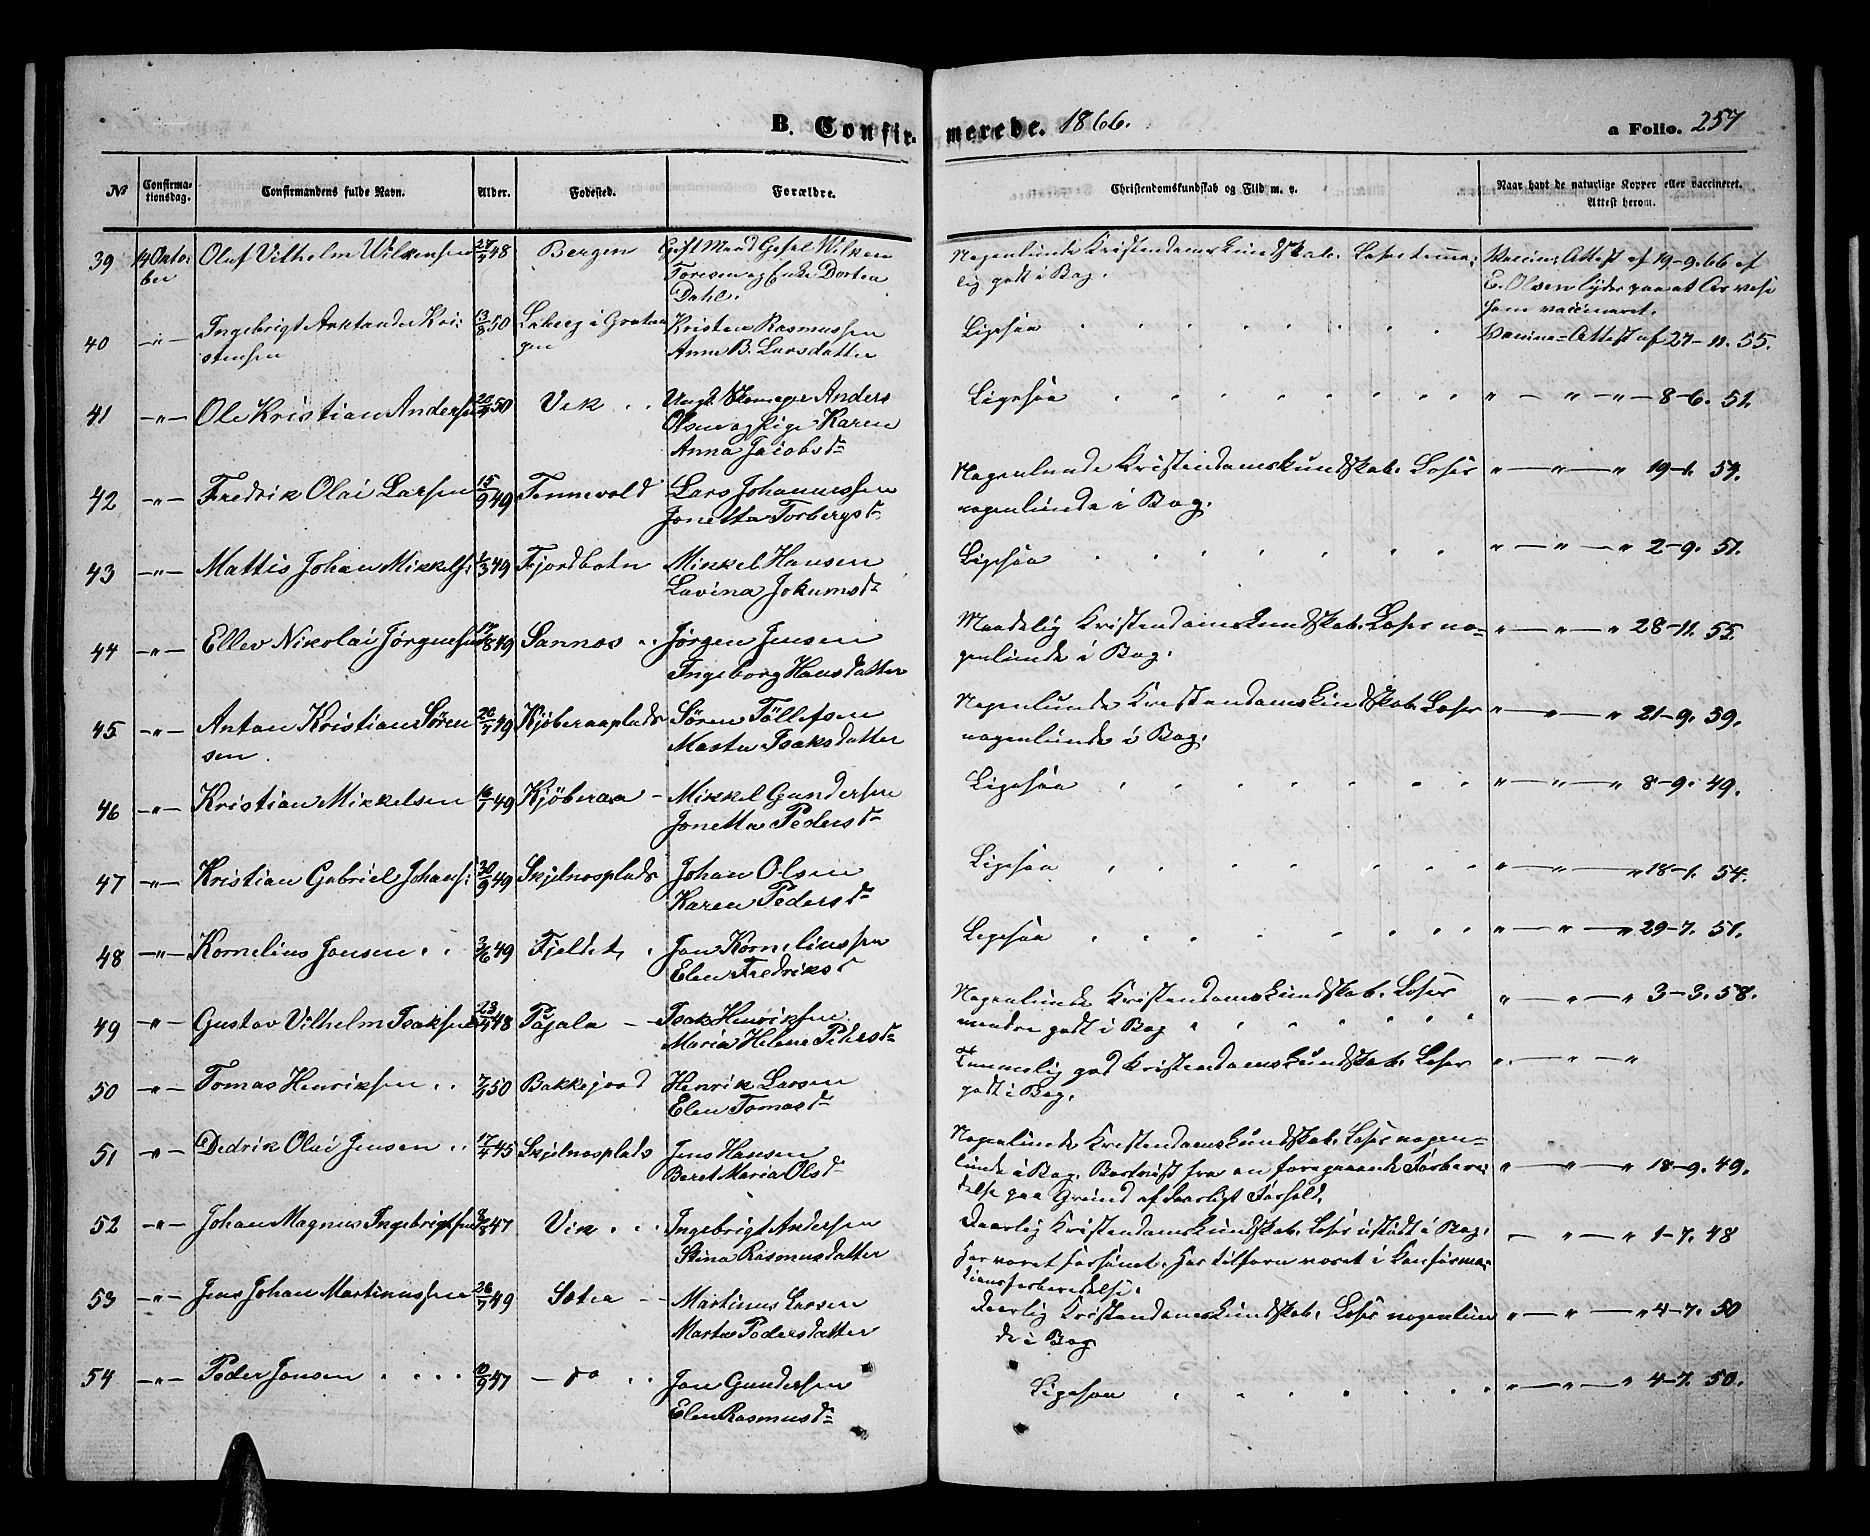 B. Confirmerede. 1866.
a Folio. 257
No
Confirmationsdag.
Confirmandens fulde Navn.
Alder.
Fødested.
Forældre.
Christendomskundskab og Flid m. v.
Naar havt de naturlige Kopper eller vaccineret. Attest herom.
39 14 Oktober Olaf Vilhelm Wilkensen 48 Bergen Gift Mand Wilken
Toresen og Enke Dortea
Dahl.
Nogenlunde Kristendomskundskab. Læser temme-
lig godt i Bog.
Vaccine Attest af 19-9. 66 af
E. Olsen lyder paa at
som vaccineret.
40 -"- Ingebrigt Kri-
stensen 13/3 50 i Gratan-
gen Kristen Rasmussen
Anne B. Larsdatter
Ligesaa
Vaccine-Attest af 27-11. 55.
41 -"- Ole Kristian Andersen 50 Vik Anders
Olsen og Pige Karen
Anna Jacobsdr
Ligesaa
" — " — " — 8-6. 51.
42 -"- Fredrik Olai Larsen 15/9 49 Tennevold Lars Johannessen
Jonetta Torbergsdr
Nogenlunde Kristendomskundskab. Læser
nogenlunde i Bog.
" — " — " 19-1. 54.
43 -"- Mattis Johan Mikkels: 1/3 49 Fjordbotn Mikkel Hansen
Lavina Jokumsdr
Ligesaa
" — " — " 2-9. 51.
44 -"- Ellev Nikolai Jørgensen 17/8 49 Sannes Jørgen Jensen
Ingeborg Hansdatter
Maadelig Kristendomskundskab. Læser no-
genlunde i Bog.
" — " — " 28-11. 55.
45 -"- Anton Kristian Søren
sen. 26/7 49 Kjøberaaplads Søren Tøllefsen
Marta Isaksdatter
Nogenlunde Kristendomskundskab. Læser
nogenlunde i Bog.
" — " — " 21-9. 59.
46 -"- Kristian Mikkelsen 16/7 49 Kjøberaa Mikkel Gundersen
Jonetta Pedersdr
Ligesaa
" — " — " 8-9. 49.
47 -"- Kristian Gabriel Johans: 30/9 49 Skjelnesplads Johan Olsen
Karen Pedersdr
Ligesaa
" — " — " 18-1. 54.
48 -"- Kornelius Jonsen 3/6 49 Fjeldet Jon Korneliussen
Elen Fredriksdr
Ligesaa
" — " — " 29-7. 51.
49 -"- Gustav Vilhelm Isaksen 23/4 48 Pajala Isak Henriksen
Maria Helena Pedersdr
Nogenlunde Kristendomskundskab. Læser
mindre godt i Bog
" — " — " 3-3. 58.
50 -"- Tomas Henriksen 50 Bakkejord Henrik Larsen
Elen Tomasdr
Temmelig god Kristendomskundskab. Læser
godt i Bog.
" — " — "
51 -"- Dedrik Olai Jensen 17/4 45 Skjelnesplads Jens Hansen
Beret Maria Olsdr
Nogenlunde Kristendomskundskab. Læser nogen-
lunde i Bog. Bortvist fra en foregaaende Forbere-
delse paa Grund af daarligt Forhold.
" — " — " 18-9. 49.
52 -"- Johan Magnus Ingebrigtsen 47 Vik Ingebrigt Andersen
Stina Rasmusdatter
Daarlig Kristendomskundskab. Læser ustødt i Bog.
Har været forsømt. Har tilforn været i Konfirma-
tionsforberedelse.
— " — " 1-7. 48
53 -"- Jens Johan Martinussen 26/7 49 Martinus Larsen
Marta Pedersdatter
Daarlig Kristendomskundskab. Læser nogenlun
de i Bog
" — " — " 4-7. 50
54 -"- Peder Jonsen 10/9 47 — do Jon Gundersen
Elen Rasmusdr
Ligesaa
" — " — " 4-7. 50.